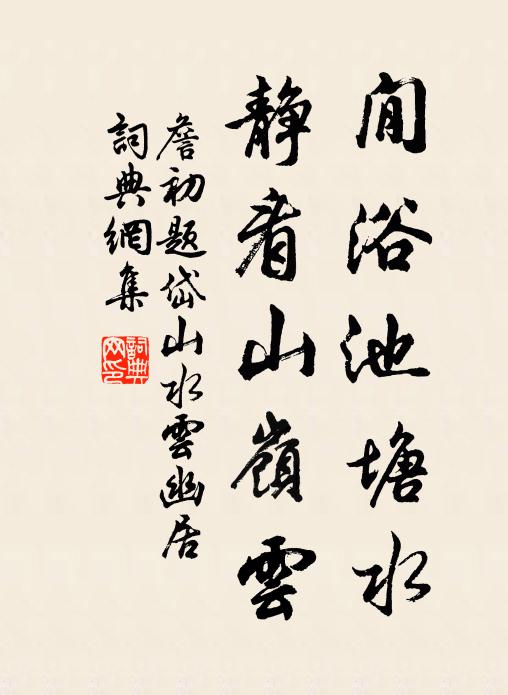 閒浴池塘水
静看山嶺雲
詹初題岱山水雲幽居
詞典網集
詞典網印